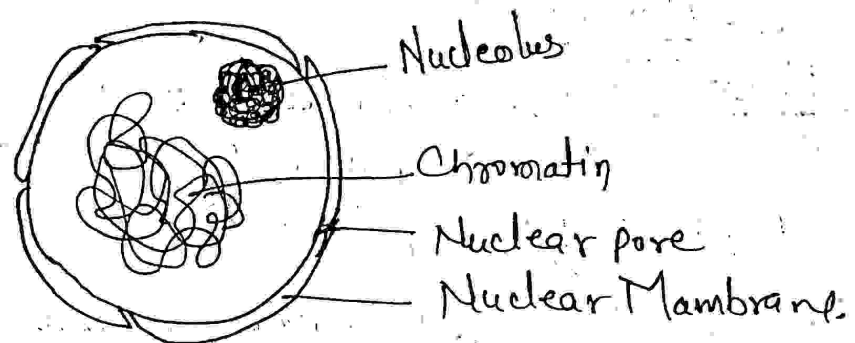 Nucleolus
Chromatin
Nuclear pore
Nuclear Mambrane.